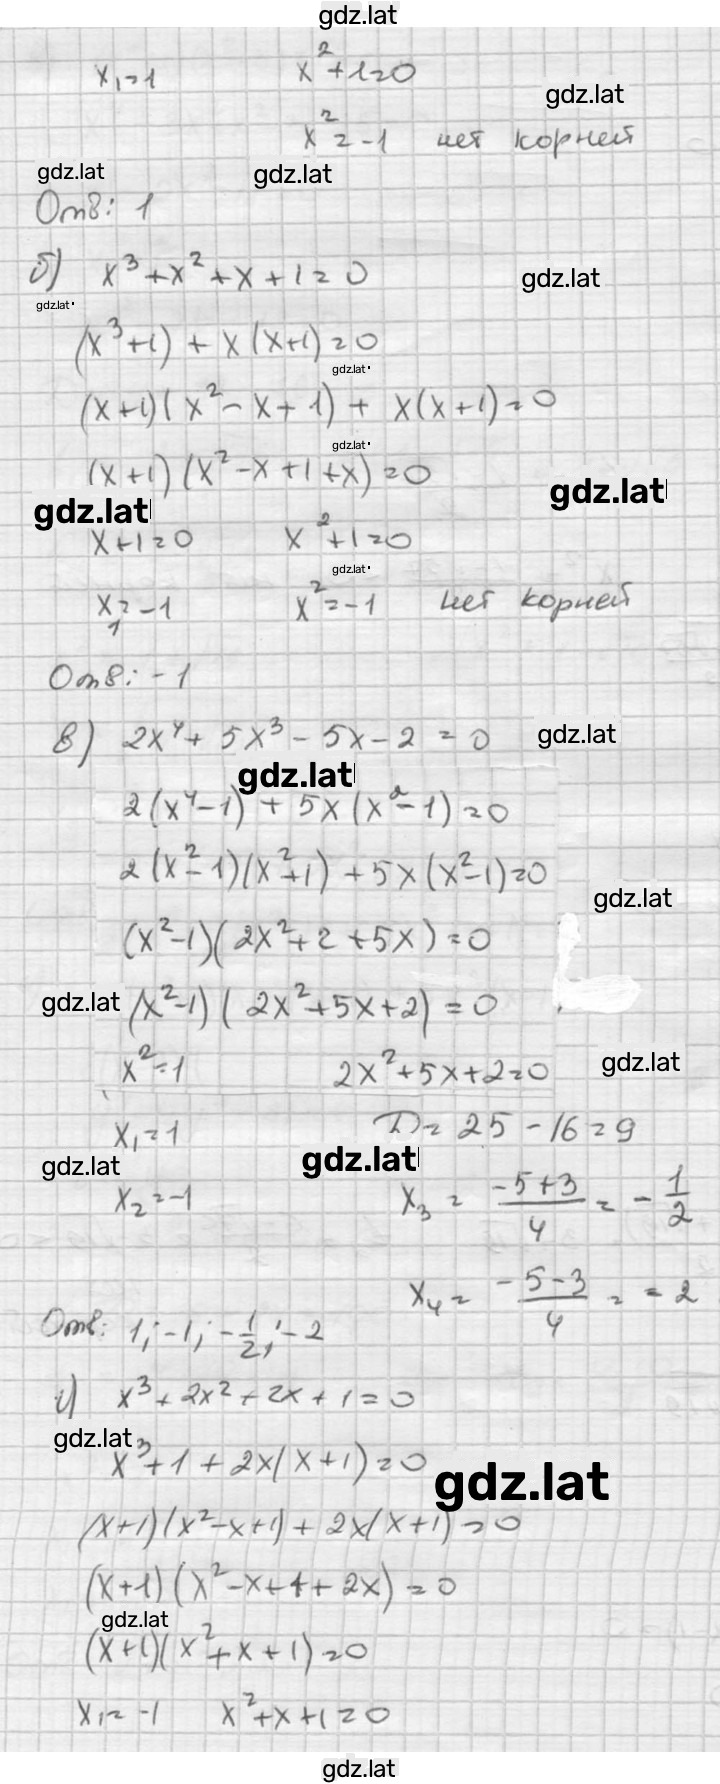 gdz.lat
x₁=1 x²+1=0
gdz.lat
x²=-1 нет корней
gdz.lat gdz.lat
Отв: 1
б) x³+x²+x+1=0
gdz.lat
gdz.lat
(x³+1) + x(x+1)=0
gdz.lat
(x+1)(x²-x+1) + x(x+1)=0
gdz.lat
(x+1)(x²-x+1+x)=0
gdz.lat
gdz.lat
x+1=0 x²+1=0
gdz.lat
x₁=-1 x²=-1 нет корней
Отв: -1
в) 2x⁴+5x³-5x-2=0
gdz.lat
gdz.lat
2(x⁴-1)+5x(x²-1)=0
2(x²-1)(x²+1)+5x(x²-1)=0
gdz.lat
(x²-1)(2x²+2+5x)=0
gdz.lat (x²-1)(2x²+5x+2)=0
x²=1 2x²+5x+2=0
gdz.lat
x₁=1 D=25-16=9
gdz.lat gdz.lat
x₂=-1 x₃=(-5+3)/4=-1/2
x₄=(-5-3)/4==2
Отв: 1; -1; -1/2; -2
г) x³+2x²+2x+1=0
gdz.lat
x³+1+2x(x+1)=0
gdz.lat
(x+1)(x²-x+1)+2x(x+1)=0
(x+1)(x²-x+1+2x)=0
gdz.lat
(x+1)(x²+x+1)=0
x₁=-1 x²+x+1=0
gdz.lat